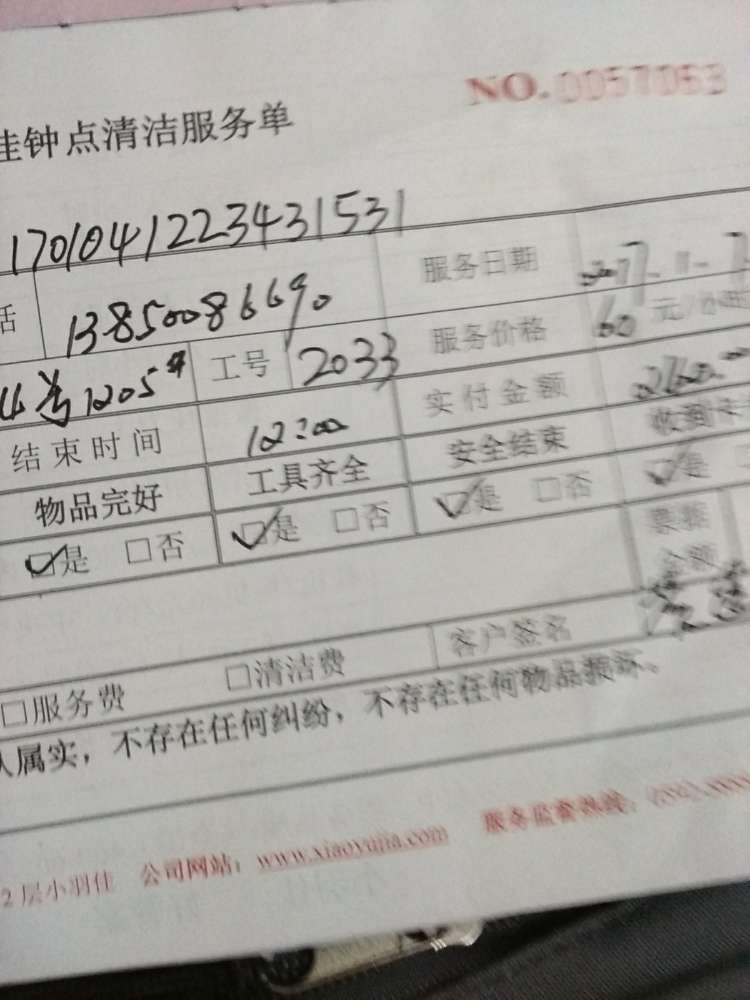 NO.0057063
佳钟点清洁服务单
170104122343 1531
话 13850086690 服务日期 2017-11-7
号1205# 工号 2033 服务价格 60 元/小时
结束时间 12:00 实付金额
物品完好 工具齐全 安全结束 收到卡
☑是 □否 ☑是 □否 ☑是 □否 ☑是
票据
金额
□服务费 □清洁费 客户签名
人属实，不存在任何纠纷，不存在任何物品损坏。
2层小羽佳 公司网站：www.xiaoyujia.com 服务监督热线：0592-